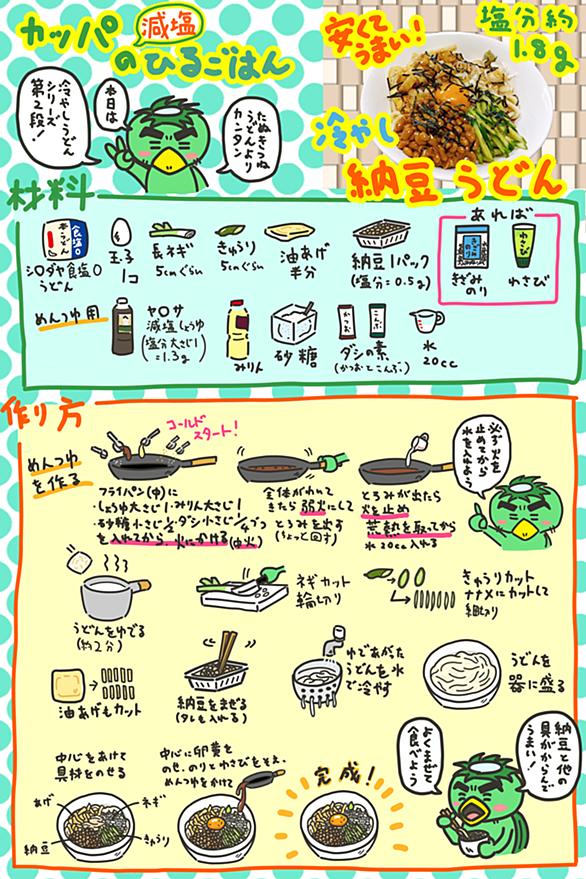 カッパ
減塩
のひるごはん
本日は
冷やしうどん
シリーズ
第2段!
たぬきつね
うどんより
カンタン
安くて
うまい!
塩分約
1.8g
冷やし
納豆うどん
材料
シロダヤ食塩0
うどん
玉子
1コ
長ネギ
5cmぐらい
きゅうり
5cmぐらい
油あげ
半分
納豆1パック
(塩分=0.5g)
あれば
きざみ
のり
わさび
めんつゆ用
ヤ○サ
減塩しょうゆ
(塩分大さじ1
=1.3g)
みりん
砂糖
ダシの素
(かつおとこんぶ)
水
20cc
作り方
めんつゆ
を作る
コールド
スタート!
フライパン(中)に
・しょうゆ大さじ1・みりん大さじ1
・砂糖小さじ1/2・ダシ小さじ1/4づつ
を入れてから、火にかける(中火)
全体がわいて
きたら弱火にして
とろみを出す
(ちょっと回す)
とろみが出たら
火を止め
荒熱を取ってから
水20cc入れる
必ず火を
止めてから
水を入れよう
うどんをゆでる
(約2分)
ネギカット
輪切り
きゅうりカット
ナナメにカットして
細切り
油あげもカット
納豆をまぜる
(タレも入れる)
ゆであがった
うどんを水
で冷やす
うどんを
器に盛る
中心をあけて
具材をのせる
あげ
ネギ
納豆
きゅうり
中心に卵黄を
のせ、のりとわさびをそえ、
めんつゆをかけて
完成!
よくまぜて
食べよう
納豆と他の
具がからんで
うまい!